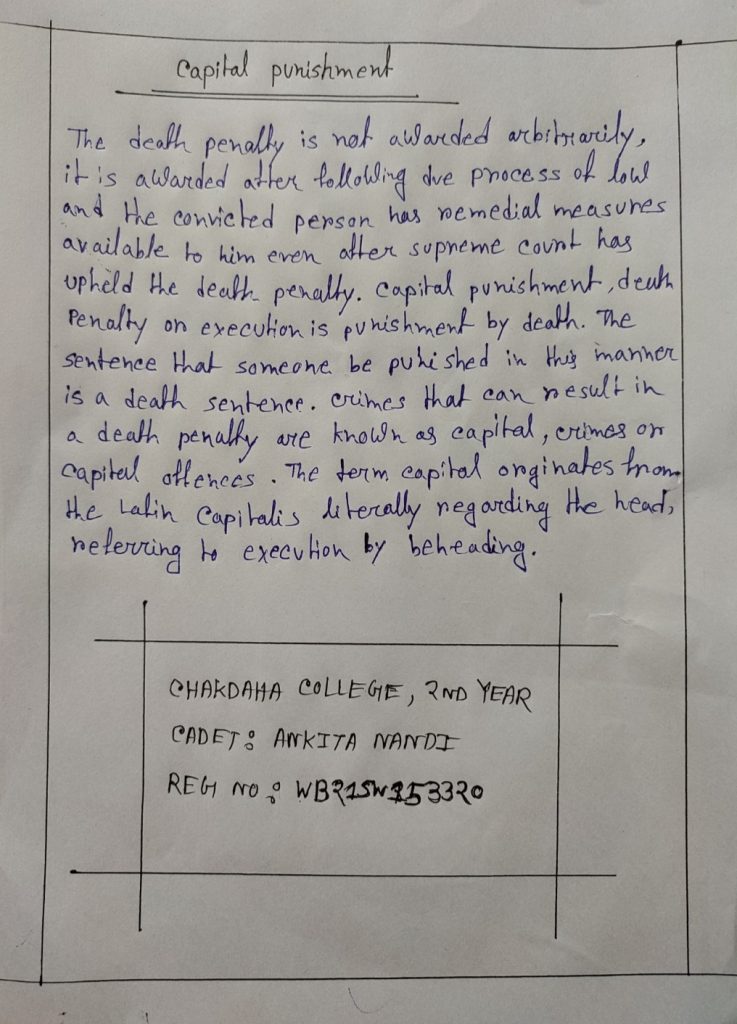 Capital punishment
The death penalty is not awarded arbitrarily,
it is awarded after following due process of low
and the convicted person has remedial measures
available to him even after supreme court has
upheld the death penalty. Capital punishment, death
Penalty or execution is punishment by death. The
sentence that someone be puhished in this manner
is a death sentence. crimes that can result in
a death penalty are known as capital, crimes or
capital offences. The term capital orginates from
the Latin Capitalis literally regarding the head,
referring to execution by beheading.
CHAKDAHA COLLEGE, 2ND YEAR
CADET: ANKITA NANDI
REG NO: